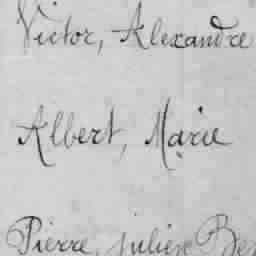 Victor, Alexandre
Albert, Marie
Pierre, julien